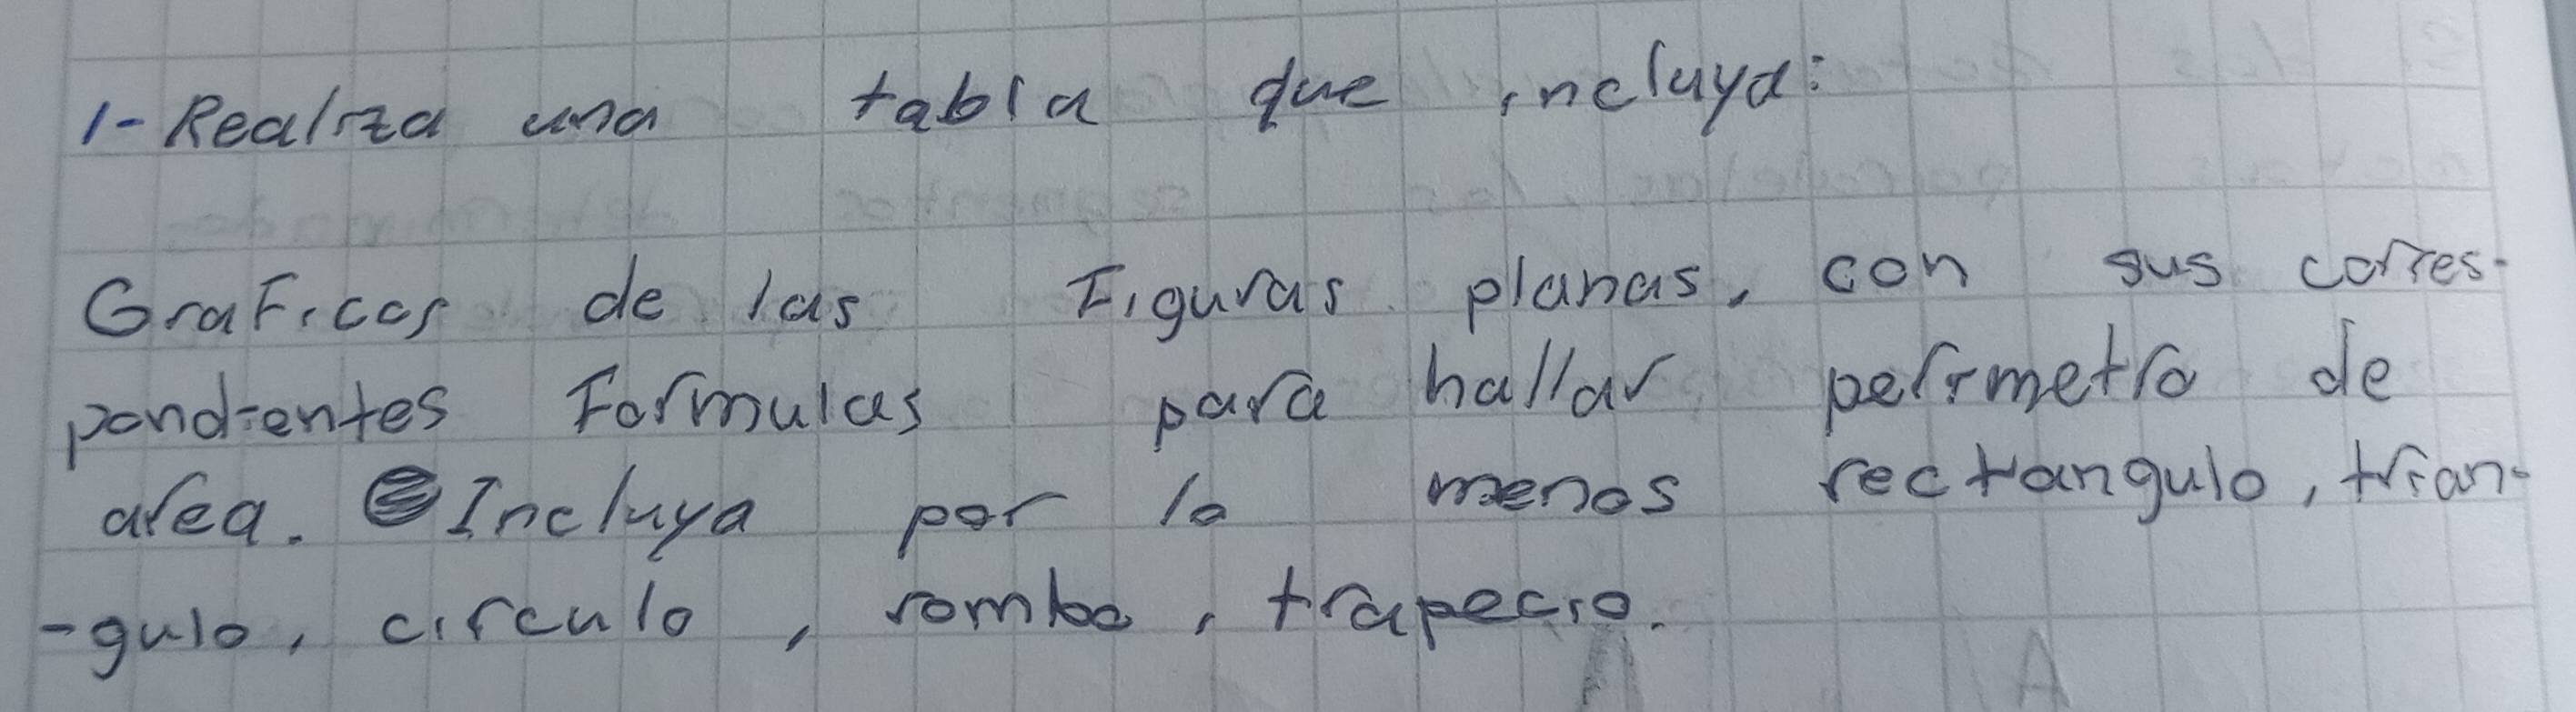 1- Realiza una tabla que incluya:
Graficos de las Figuras planas, con sus corres-
pondientes Formulas para hallar perimetro de
area. Incluya por lo menos rectangulo, trian-
-gulo, circulo, rombo, trapecio.